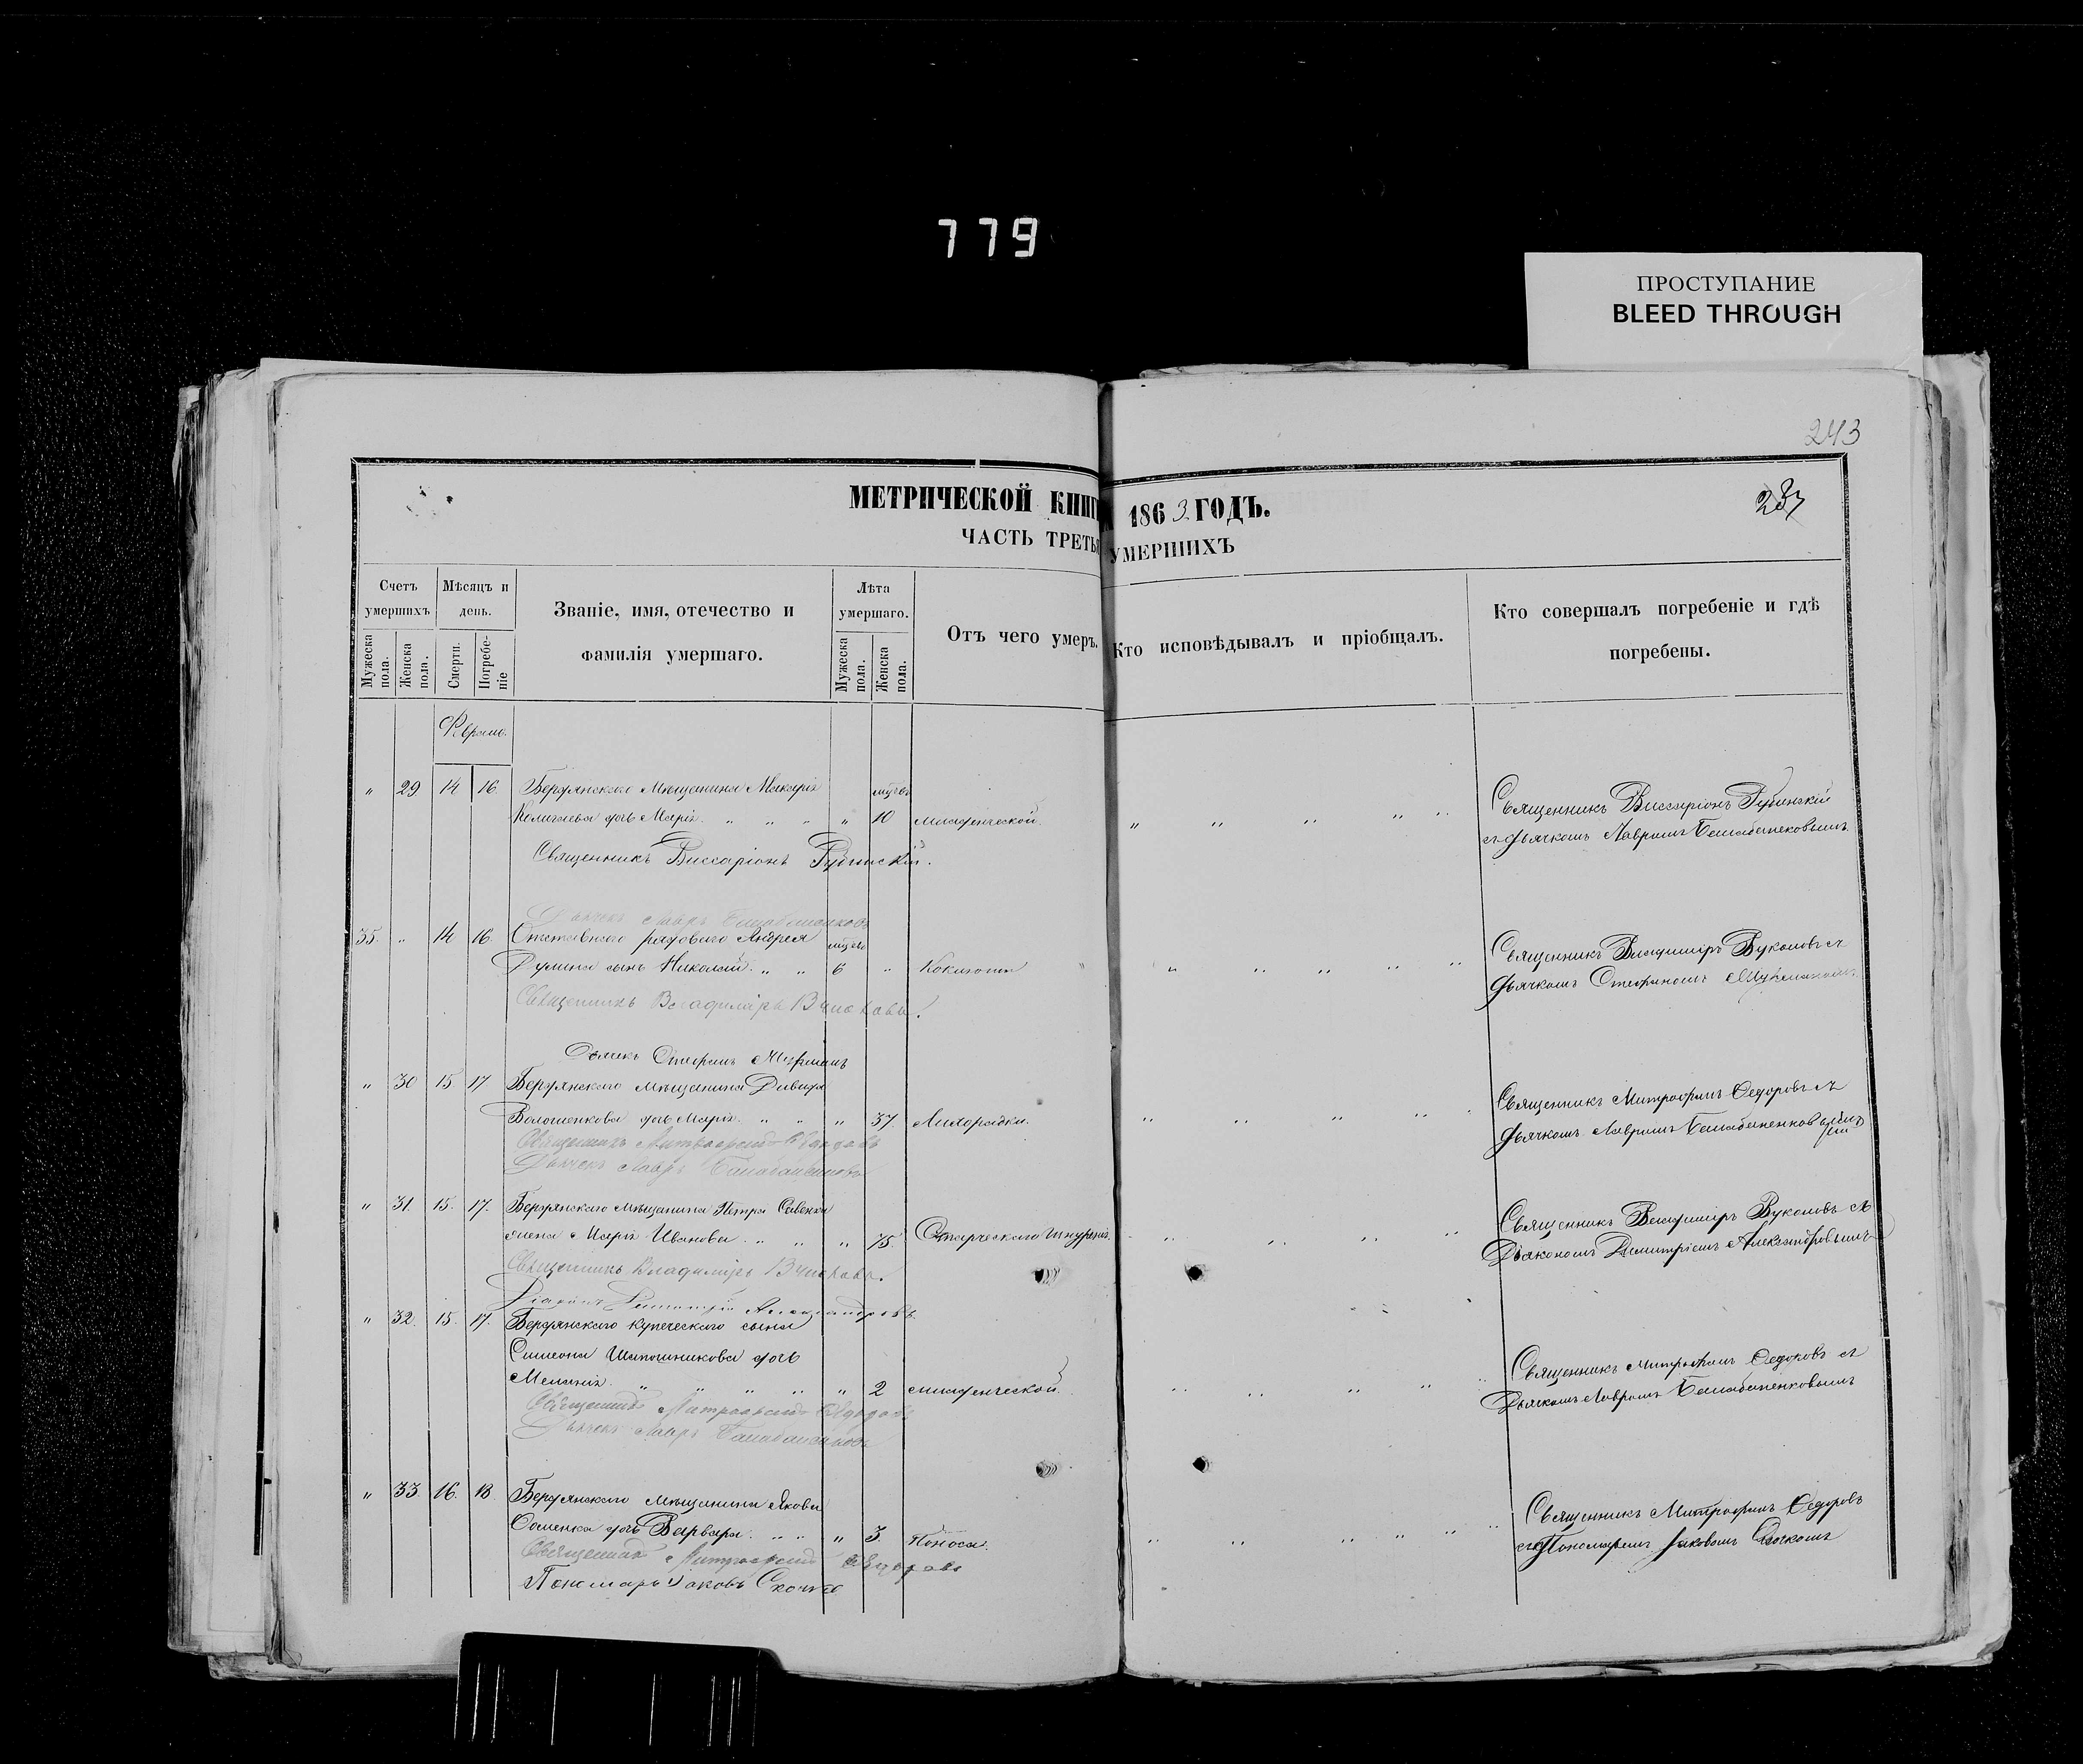 779
ПРОСТУПАНИЕ
BLEED THROUGH
243
237
МЕТРИЧЕСКОЙ КНИГ 1863 ГОДЪ.
ЧАСТЬ ТРЕТЬЯ УМЕРШИХЪ
Счетъ умершихъ
Мужеска пола.
Женска пола.
Мѣсяцъ и день.
Смерти.
Погребеніе
Званіе, имя, отечество и фамилія умершаго.
Лѣта умершаго.
Мужеска пола.
Женска пола.
Отъ чего умеръ.
Кто исповѣдывалъ и пріобщалъ.
Кто совершалъ погребеніе и гдѣ погребены.
Февраль.
" 29 14 16 Бердянскаго Мѣщанина Макарія мѣсец. Священникъ Виссаріонъ
дочь Марія " " " " 10 младенческой. " " " " " съ дьячкомъ Лавромъ
Священникъ Виссаріонъ
Дьячекъ Лавръ
35. " 14 16. Отставнаго рядоваго Андрея мѣсец. Священникъ Владиміръ Вуколовъ съ
сынъ Николай. " " 6 " " " " " " дьячкомъ Стефаномъ
Священникъ Владиміръ Вуколовъ.
Дьячекъ Стефанъ
" 30 15 17 Бердянскаго мѣщанина Давида Священникъ Митрофанъ Федоровъ съ
Волошенкова дочь Марія. " " " 37. Лихорадки. " " " " " дьячкомъ Лавромъ
Священникъ Митрофанъ Федоровъ
Дьячекъ Лавръ
" 31. 15. 17. Бердянскаго мѣщанина Петра Савенка Священникъ Владиміръ Вуколовъ съ
жена Марія Иванова. " " " 75. Старческаго изнуренія. " " " " Діакономъ Димитріемъ Александровымъ
Священникъ Владиміръ Вуколовъ.
Діаконъ Димитрій Александровъ
" 32. 15. 17. Бердянскаго купеческаго сына
Симеона Шапошникова дочь Священникъ Митрофанъ Федоровъ съ
Меланія. " " " " " 2 младенческой. " " " " " Дьячкомъ Лавромъ
Священникъ Митрофанъ Федоровъ
Дьячекъ Лавръ
" 33 16. 18 Бердянскаго мѣщанина Якова Священникъ Митрофанъ Федоровъ
дочь Варвара. " " " 3. Поноса. " " " " " " съ Пономаремъ Іаковомъ Скочкомъ
Священникъ Митрофанъ Федоровъ
Пономарь Іаковъ Скочко